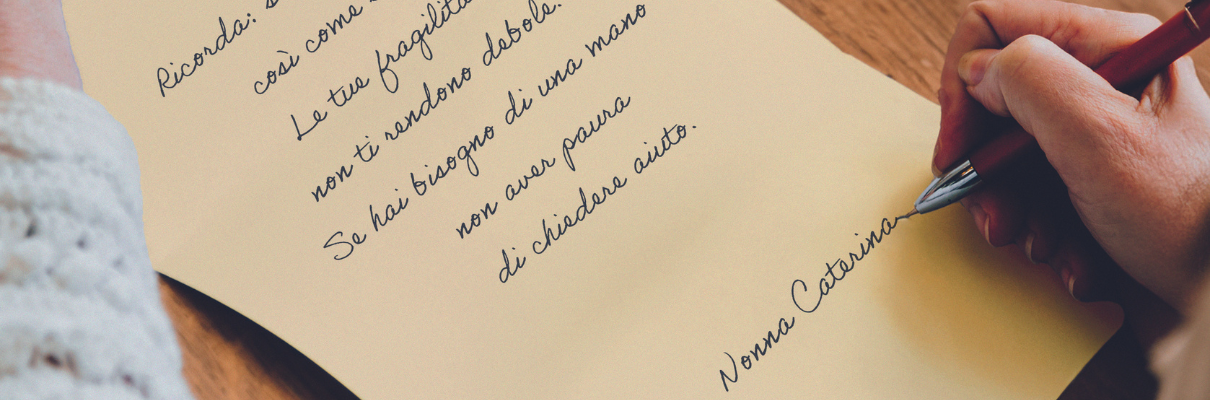 Ricorda:
così come
Le tue fragilità
non ti rendono debole.
Se hai bisogno di una mano
non aver paura
di chiedere aiuto.
Nonna Caterina